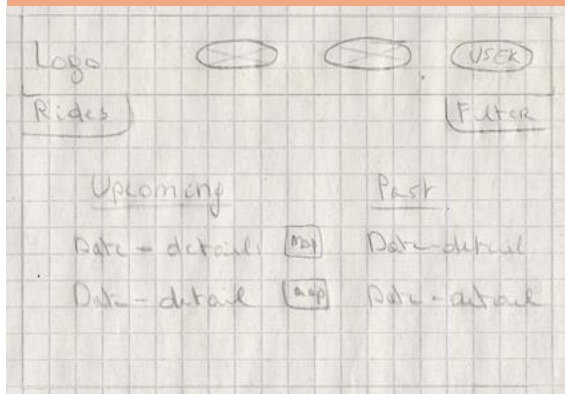 Logo USER
Rides Filter
Upcoming Past
Date - details map Date - detail
Date - detail map Date - detail